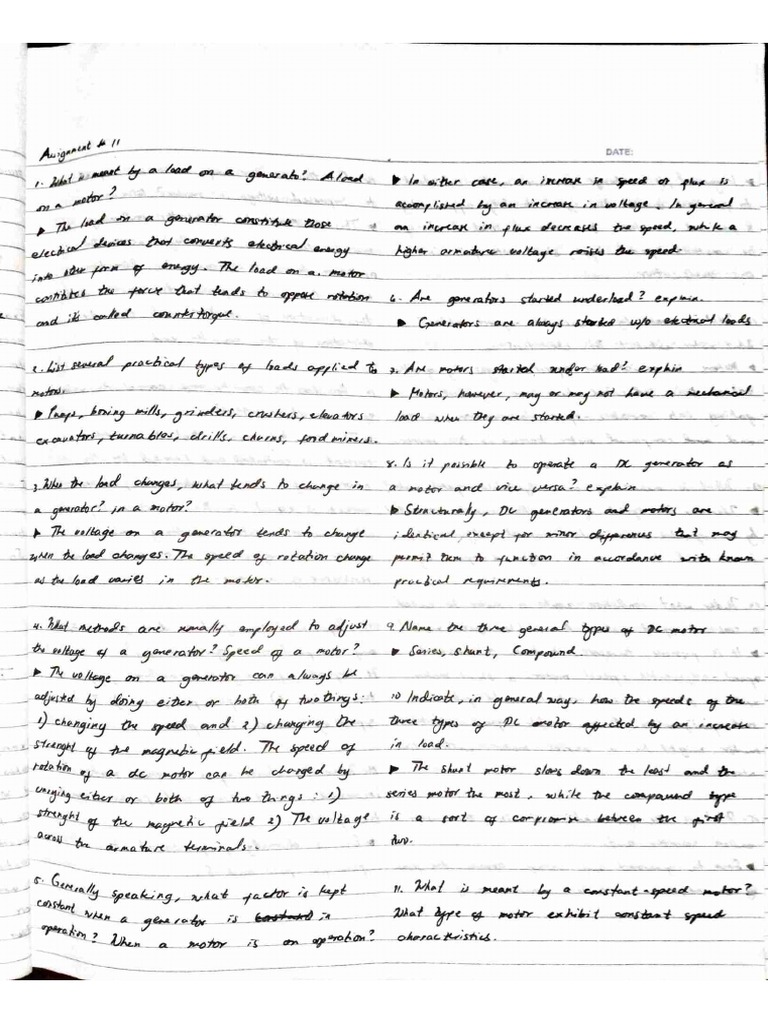 Assignment # 11
1. What is meant by a load on a generato? A load
on a motor?
▶ The load on a generator constitute those
electrical devices that converts electrical energy
into other form of energy. The load on a motor
constitutes the force that tends to oppose rotation
and it's called countertorque.
2. List several practical types of loads applied to
motors.
▶ Pumps, boring mills, grinders, crushers, elevators
excavators, turnables, drills, churns, food mixers.
3. When the load changes, what tends to change in
a generator? in a motor?
▶ The voltage on a generator tends to change
when the load changes. The speed of rotation change
as the load varies in the motor.
4. What methods are usually employed to adjust
the voltage of a generator? Speed of a motor?
▶ The voltage on a generator can always be
adjusted by doing either or both of two things:
1) changing the speed and 2) changing the
strenght of the magnetic field. The speed of
rotation of a dc motor can be changed by
varying either or both of two things: 1)
strenght of the magnetic field 2) The voltage
across the armature terminals.
5. Generally speaking, what factor is kept
constant when a generator is in
operation? When a motor is on operation?
DATE:
▶ In either case, an increase in speed or flux is
accomplished by an increase in voltage. In general
an increase in flux decreases the speed, while a
higher armature voltage raises the speed.
6. Are generators started underload? explain.
▶ Generators are always started w/o electrical loads
7. Are motors started under load? explain
▶ Motors, however, may or may not have a mechanical
load when they are started.
8. Is it possible to operate a DC generator as
a motor and vice versa? explain
▶ Structurally, DC generators and motors are
identical except for minor differences that may
permit them to function in accordance with known
practical requirements.
9. Name the three general types of DC motor
▶ Series, Shunt, Compound.
10 Indicate, in general way, how the speeds of the
three types of DC motor affected by an increase
in load.
▶ The shunt motor slows down the least and the
series motor the most, while the compound type
is a sort of compromise between the first
two.
11. What is meant by a constant-speed motor?
What type of motor exhibit constant speed
characteristics.